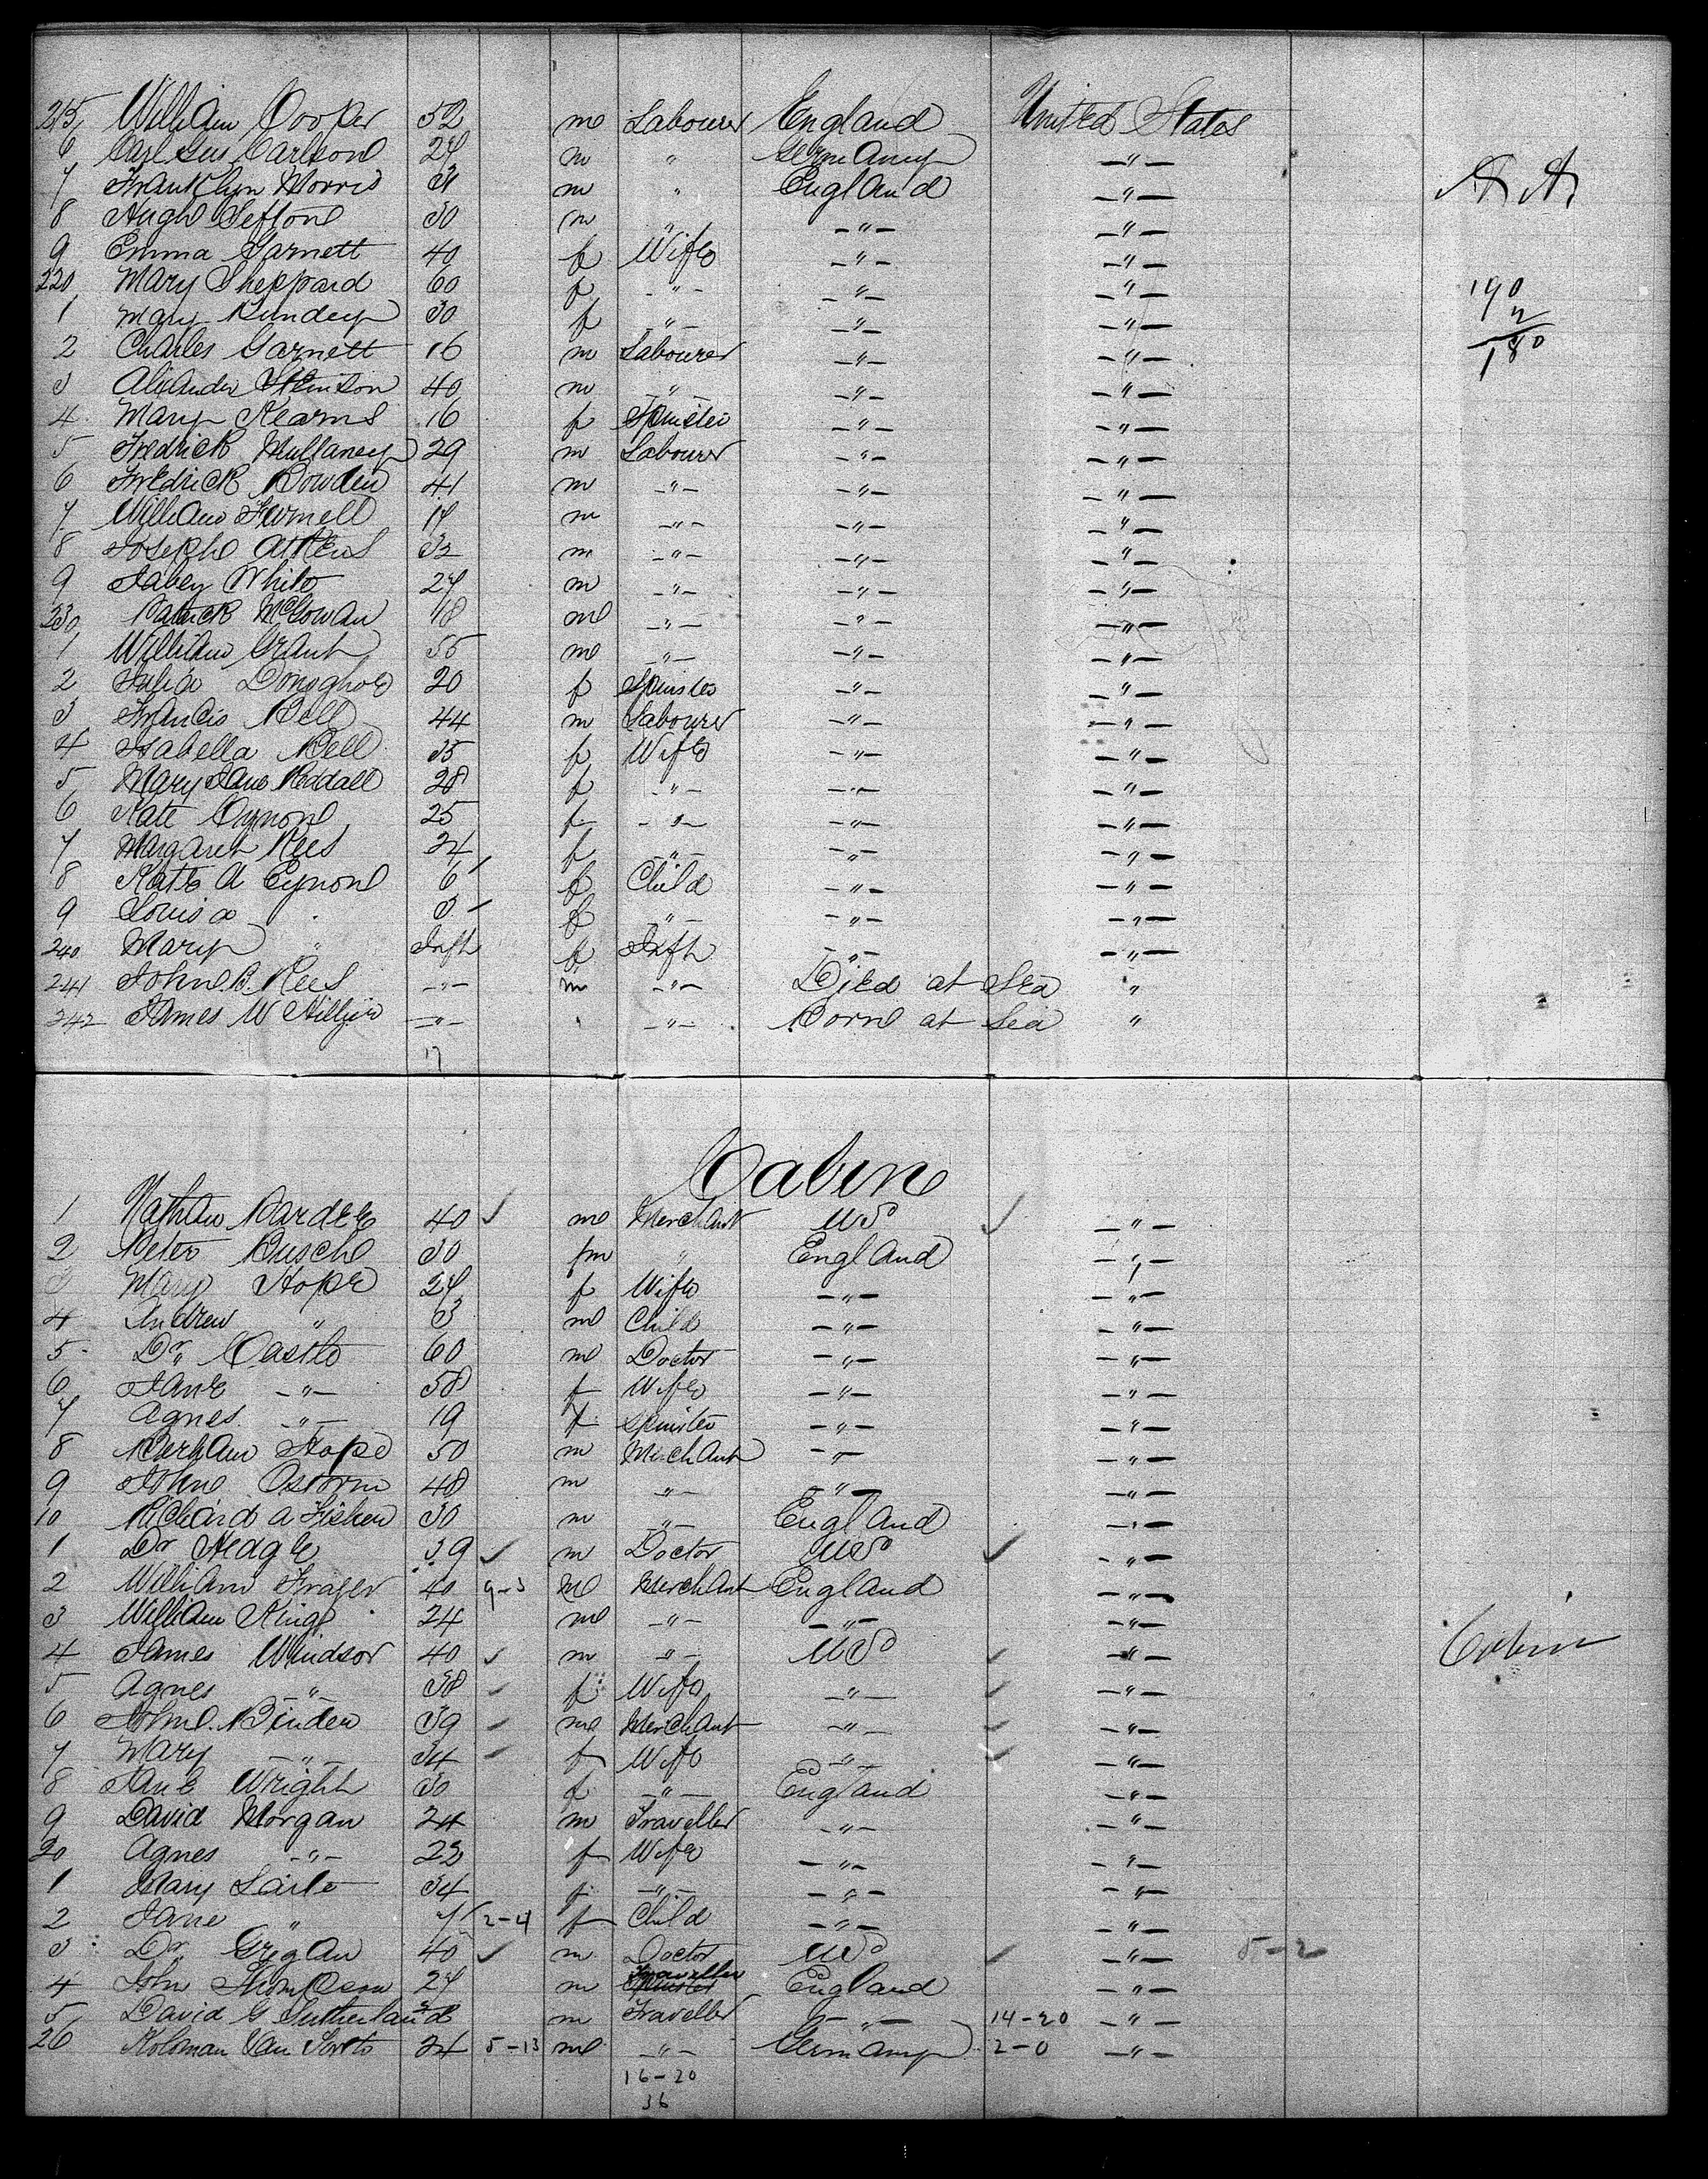 215 William Cooper 52 m Labourer England United States
6 Carl Gus Carlson 27 m " Germany —"—
7 Franklyn Morris 31 m " England —"—
8 Hugh Sefton 30 m " —"— —"—
9 Emma Garnett 40 f Wife —"— —"—
220 Mary Sheppard 60 f —"— —"— —"— 190
1 Mary 30 f —"— —"— —"—
2 Charles Garnett 16 m Labourer —"— —"— 180
3 40 m —"— —"— —"—
4 Mary Kearns 16 f Spinster —"— —"—
5 Fredrick Mullaney 29 m Labourer —"— —"—
6 Fredrick Bowden 41 m —"— —"— —"—
7 William 17 m —"— —"— —"—
8 Joseph Atkins 32 m —"— —"— "
9 White 27 m —"— —"— —"—
230 Patrick McGowan 18 m —"— —"— —"—
1 William Grant 55 m —"— —"— —"—
2 Julia Donoghoe 20 f Spinster —"— —"—
3 Francis Bell 44 m Labourer —"— —"—
4 Isabella Bell 35 f Wife —"— —"—
5 Mary Jane Reddall 28 f —"— —"— —"—
6 Kate Eynon 25 f —"— —"— —"—
7 Margaret Rees 24 f —"— " —"—
8 Kate A Eynon 6 f Child —"— —"—
9 Louisa " 3 f —"— —"— —"—
240 Mary " Inft f Inft —"— —"—
241 John B. Rees —"— m —"— Died at Sea "
242 James W —"— —"— Born at Sea "
17
Cabin
1 Nathan Bardee 40 ✓ m Merchant US ✓ —"—
2 Peter Busch 30 m " England —"—
3 Mary Hope 27 f Wife —"— —"—
4 Andrew " 3 m Child —"— —"—
5 Dr. Castle 60 m Doctor —"— —"—
6 Jane —"— 58 f Wife —"— —"—
7 Agnes —"— 19 f Spinster —"— —"—
8 Hope 50 m Merchant —"— —"—
9 John Osborn 48 m —"— —"— —"—
10 Richard A Fisher 30 m —"— England —"—
1 Dr Heagle 39 ✓ m Doctor US ✓ —"—
2 William Frazer 40 9-3 m Merchant England —"—
3 William King 24 m —"— —"— —"—
4 James Windsor 40 ✓ m —"— US ✓ —"— Cabin
5 Agnes —"— 38 ✓ f Wife —"— ✓ —"—
6 John Binder 39 ✓ m Merchant —"— ✓ —"—
7 Mary —"— 34 ✓ f Wife —"— ✓ —"—
8 Jane Wright 30 f —"— England —"—
9 David Morgan 24 m Traveller —"— —"—
20 Agnes —"— 23 f Wife —"— —"—
1 Mary 34 f —"— —"— —"—
2 Jane " 7 2-4 f Child —"— —"—
3 Dr. Gregan 40 ✓ m Doctor US ✓ —"— 5-2
4 John Thompson 27 m Traveller England —"—
5 David G Sutherland m Traveller —"— 14-20 —"—
26 Koloman Van 24 5-13 m —"— Germany 2-0 —"—
16-20
36